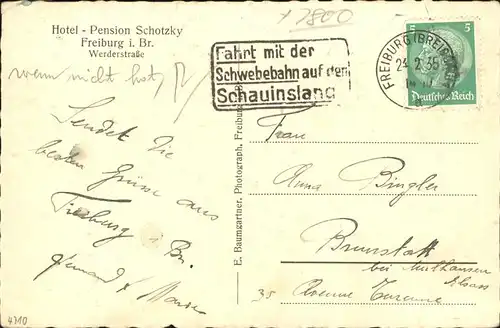 + 7800
Hotel - Pension Schotzky
Freiburg i. Br.
Werderstraße
Fahrt mit der
Schwebebahn auf den
Schauinsland
FREIBURG (BREISGAU)
24.2.35
5 5
Deutsches Reich
wenn nicht
Sendet Die
besten Grüsse aus
Freiburg i. Br.
E. Baumgartner, Photograph, Freiburg
Frau
Anna Bingler
Brunstatt
bei Mulhausen
Elsass
35 Avenue Turenne
4710